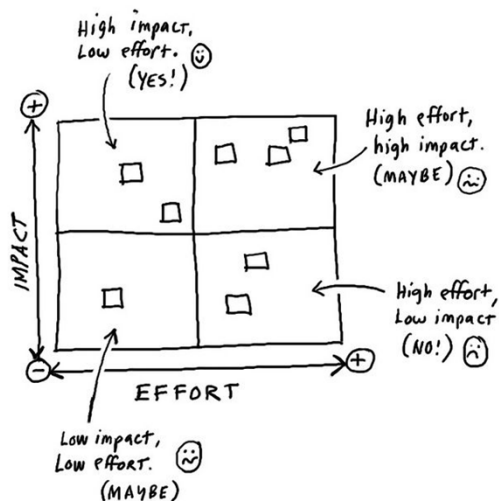 High impact,
Low effort.
(YES!)
High effort,
high impact.
(MAYBE)
IMPACT
High effort,
Low impact
(NO!)
EFFORT
Low impact,
Low effort.
(MAYBE)